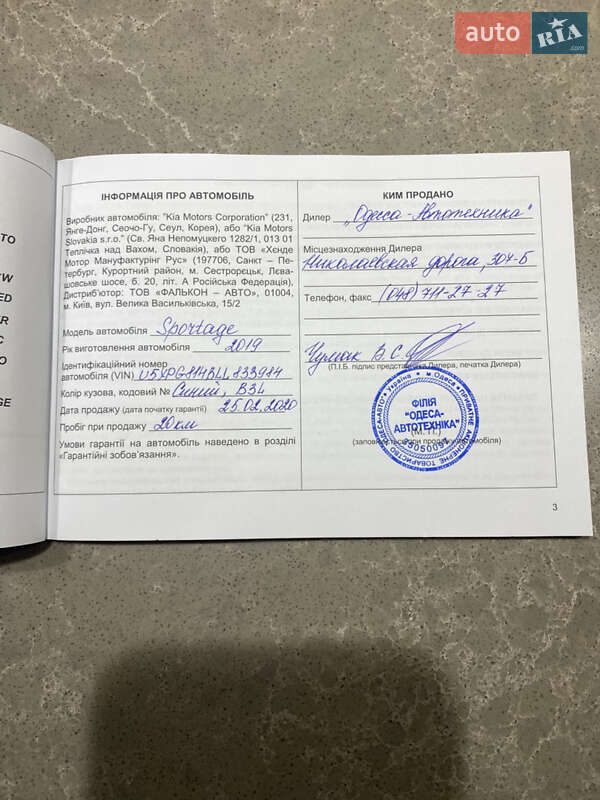 auto RIA.com
ТО
W
ED
R
C
O
GE
ІНФОРМАЦІЯ ПРО АВТОМОБІЛЬ
Виробник автомобіля: "Kia Motors Corporation" (231,
Янге-Донг, Сеочо-Гу, Сеул, Корея), або "Kia Motors
Slovakia s.r.o." (Св. Яна Непомуцкего 1282/1, 013 01
Теплічка над Вахом, Словакія), або ТОВ «Хенде
Мотор Мануфактурінг Рус» (197706, Санкт – Пе-
тербург, Курортний район, м. Сестрорєцьк, Лєва-
шовське шосе, б. 20, літ. А Російська Федерація),
Дистриб'ютор: ТОВ «ФАЛЬКОН – АВТО», 01004,
м. Київ, вул. Велика Васильківська, 15/2
Модель автомобіля Sportage
Рік виготовлення автомобіля 2019
Ідентифікаційний номер
автомобіля (VIN) U5YPG814BLL833984
Колір кузова, кодовий № Синий, B3L
Дата продажу (дата початку гарантії) 25.02.2020
Пробіг при продажу 20 км
Умови гарантії на автомобіль наведено в розділі
«Гарантійні зобов'язання».
КИМ ПРОДАНО
Дилер „Одесса-Автотехника"
Місцезнаходження Дилера
Николаевская дорога, 304-Б
Телефон, факс (048) 711-27-27
Чумак В.С.
(П.І.Б. підпис представника Дилера, печатка Дилера)
Україна м.Одеса
ПРИВАТНЕ АКЦІОНЕРНЕ ТОВАРИСТВО "ОДЕСА-АВТО"
ФІЛІЯ
"ОДЕСА-
АВТОТЕХНІКА"
(М.П.)
(заповнюється при продажу автомобіля)
3